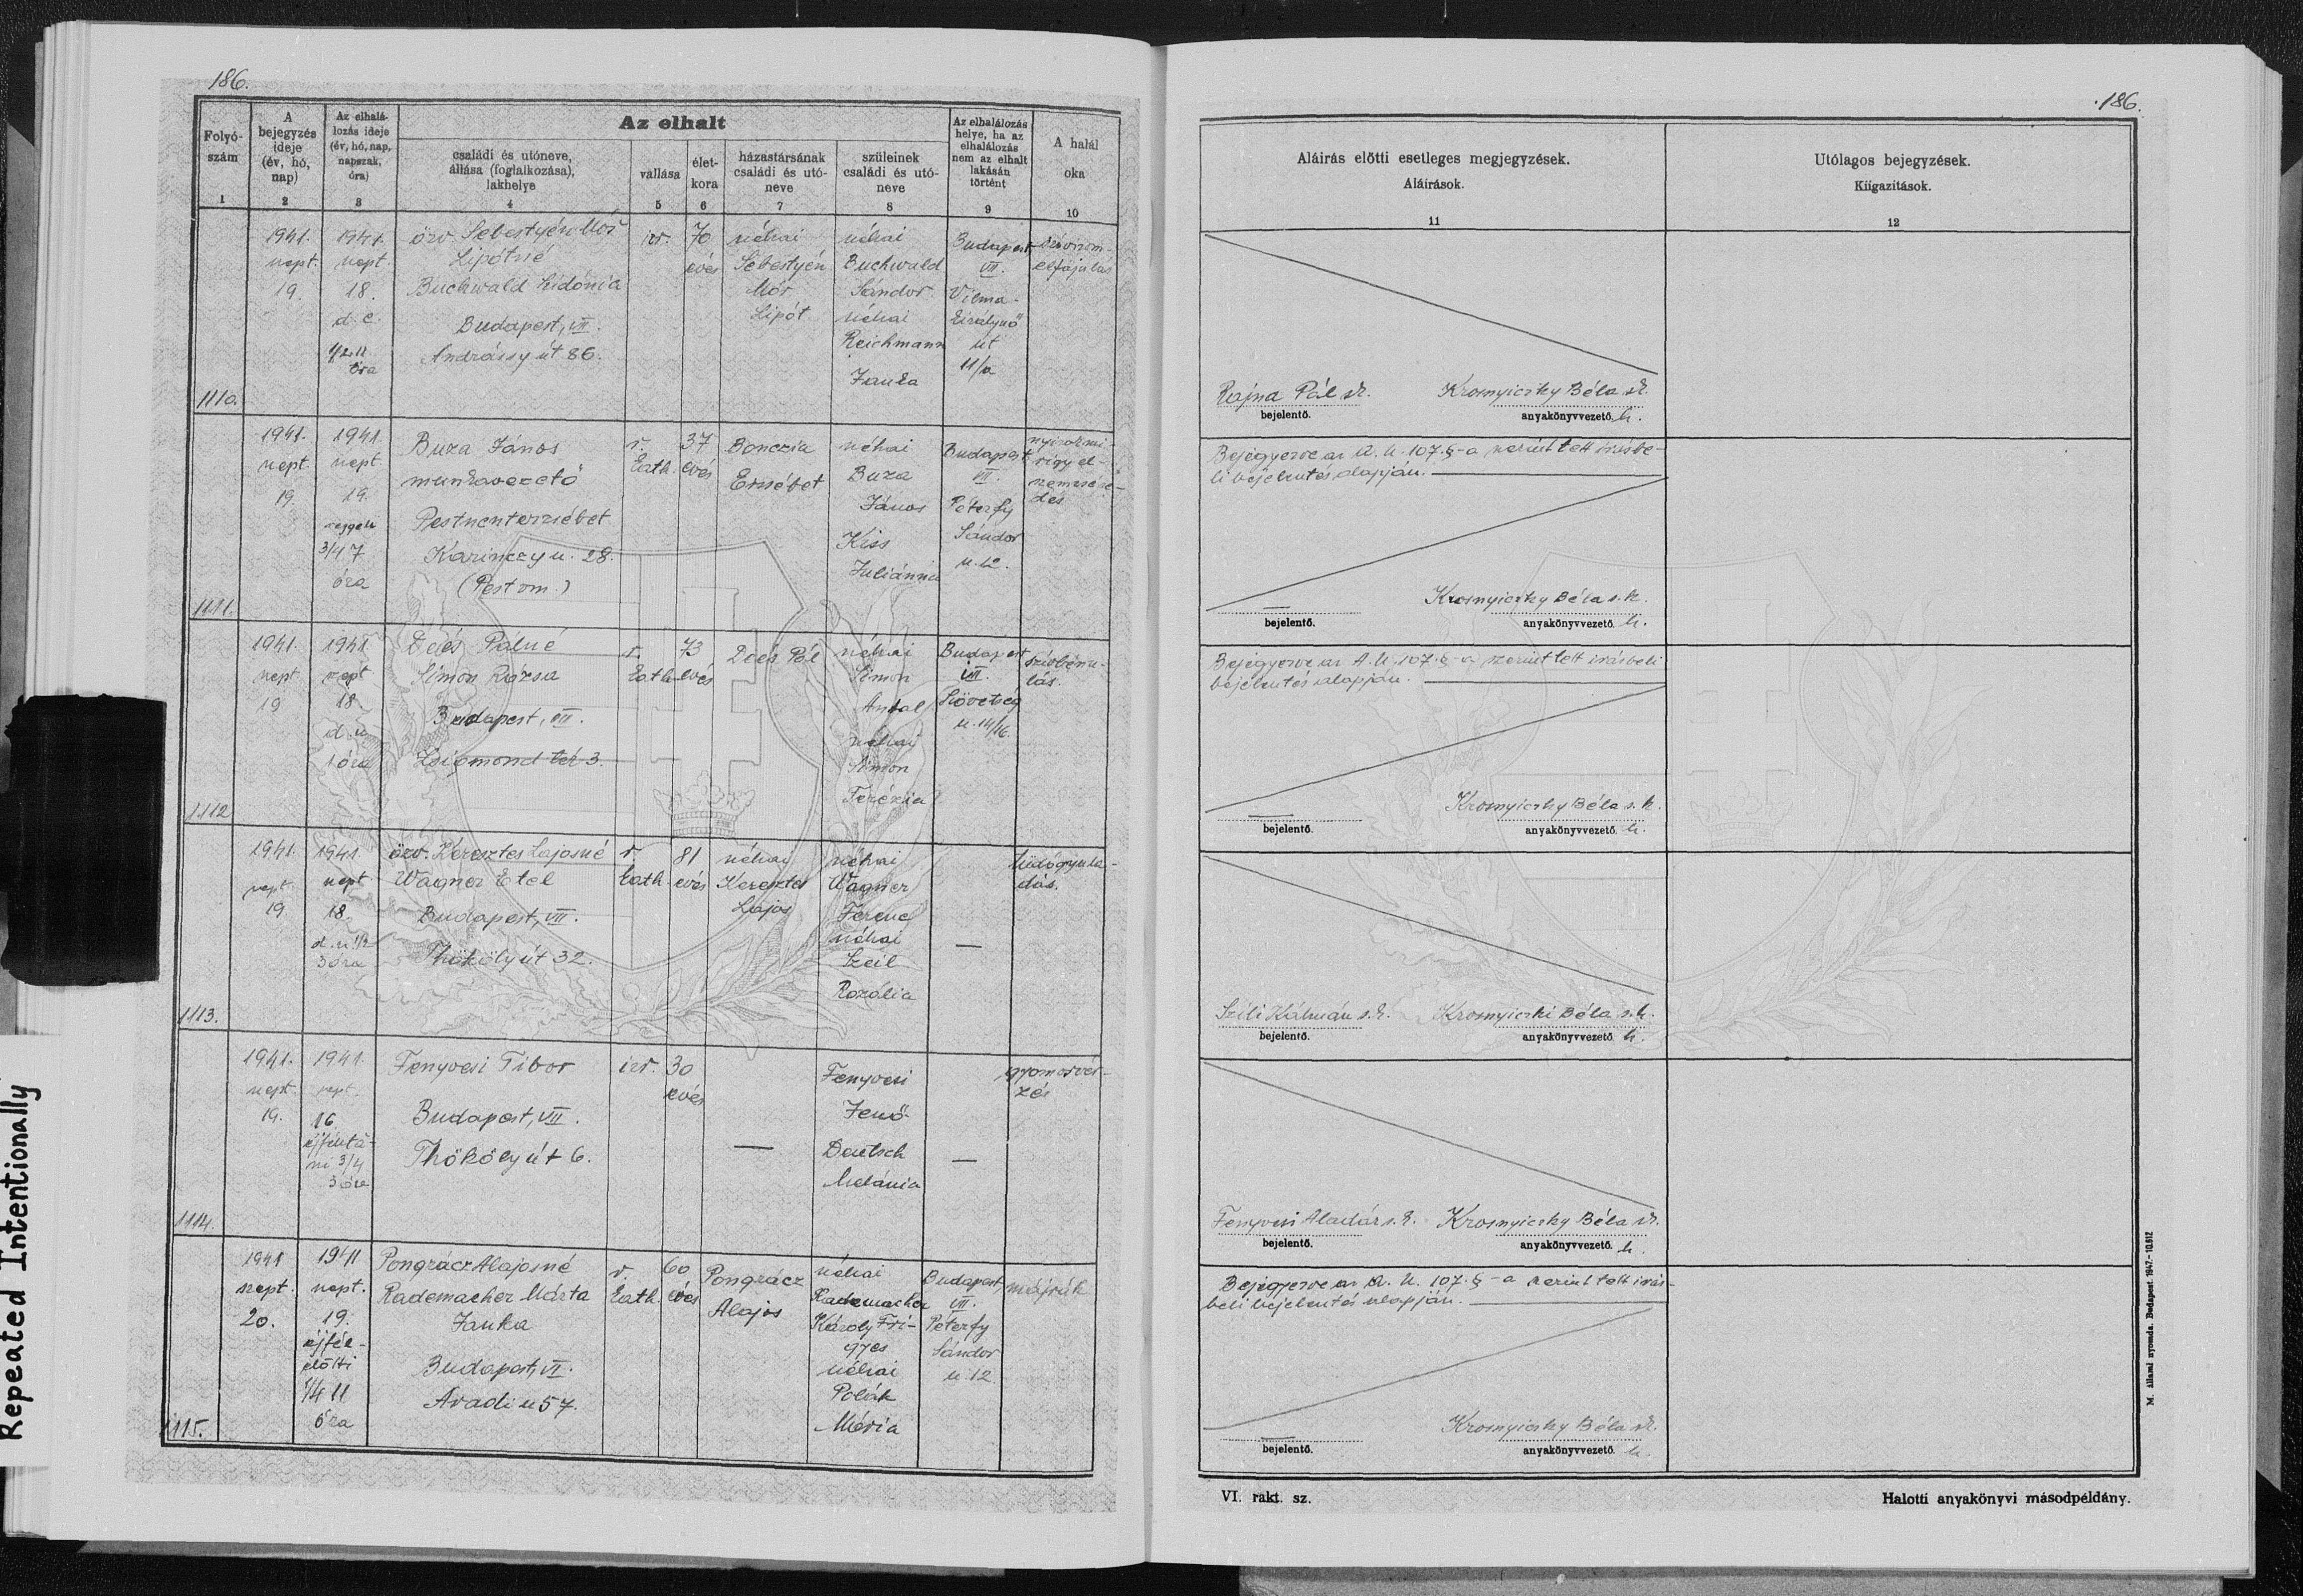 186.
Folyó-
szám
A
bejegyzés
ideje
(év, hó,
nap)
Az elhalá-
lozás ideje
(év, hó, nap,
napszak,
óra)
Az elhalt
családi és utóneve,
állása (foglalkozása),
lakhelye
vallása
élet-
kora
házastársának
családi és utó-
neve
szüleinek
családi és utó-
neve
Az elhalálozás
helye, ha az
elhalálozás
nem az elhalt
lakásán
történt
A halál
oka
1 2 3 4 5 6 7 8 9 10
1110.
1941.
szept.
19.
1941.
szept.
18.
d. e.
1/2 11
óra
özv. Sebestyén Mór
Lipótné
Buchwald Szidónia
Budapest, VII.
Andrássy út 86.
izr.
70
éves
néhai
Sebestyén
Mór
Lipót
néhai
Buchwald
Sándor
néhai
Reichmann
Janka
Budapest
VII.
Vilma
királynő
út
11/a
szívizom-
elfajulás
1111.
1941.
szept.
19.
1941.
szept.
19.
reggeli
3/4 7
óra
Buza János
munkavezető
Pestszenterzsébet
Kazinczy u. 28.
(Pest vm.)
r.
kath.
37
éves
Bonczia
Erzsébet
néhai
Buza
János
Kiss
Juliánna
Budapest
VII.
Péterfy
Sándor
u. 12.
1112
1941.
szept
19
1941
szept
18
d. u
1 óra
Deés Pálné
Simon Rózsa
Budapest, III.
Zsigmond tér 3.
r.
kath.
73
éves
Deés Pál
néhai
Simon
Antal
néhai
Simon
Terézia
Budapest
VII.
Szövetség
u. 14/16.
szívbénu-
lás.
1113.
1941.
szept.
19.
1941.
szept
18.
d. u. 1/2
3 óra
özv. Keresztes Lajosné
Wagner Etel
Budapest, VII.
Thököly út 32.
r.
kath.
81
éves
néhai
Keresztes
Lajos
néhai
Wagner
Ferenc
néhai
Szeil
Rozália
—
tüdőgyula-
dás.
1114.
1941.
szept.
19.
1941.
szept.
16.
éjfélutá-
ni 3/4
3 óra
Fenyvesi Tibor
Budapest, VII.
Thököly út 6.
izr.
30
éves
—
Fenyvesi
Jenő
Deutsch
Melánia
—
gyomorvér-
zés
1115.
1941
szept.
20.
1941
szept.
19.
éjfél-
előtti
1/4 11
óra
Pongrácz Alajosné
Rademacher Márta
Janka
Budapest, VI.
Aradi u 57.
r.
kath.
60
éves
Pongrácz
Alajos
néhai
Rademacher
Károly Fri-
gyes
néhai
Polák
Mária
Budapest,
VII.
Péterfy
Sándor
u. 12.
májrák
186.
Aláírás előtti esetleges megjegyzések.
Aláírások.
11
Utólagos bejegyzések.
Kiigazítások.
12
Rajna Pál sk. Krosnyiczky Béla sk.
bejelentő. anyakönyvvezető. h.
Bejegyezve az A. U. 107. §-a szerint tett írásbe-
li bejelentés alapján.
— Krosnyiczky Béla s. k.
bejelentő. anyakönyvvezető. h.
Bejegyezve az A. U. 107. §-a szerint tett írásbeli
bejelentés alapján.
— Krosnyiczky Béla s. k.
bejelentő. anyakönyvvezető. h.
Szili Kálmán s. k. Krosnyiczki Béla s. k.
bejelentő. anyakönyvvezető. h.
Fenyvesi Aladár s. k. Krosnyiczky Béla sk.
bejelentő. anyakönyvvezető. h.
Bejegyezve az A. U. 107. §-a szerint tett írás-
beli bejelentés alapján.
— Krosnyiczky Béla sk.
bejelentő. anyakönyvvezető. h.
VI. rakt. sz.
Halotti anyakönyvi másodpéldány.
M. állami nyomda. Budapest. 1942.- 10.612
Repeated Intentionally